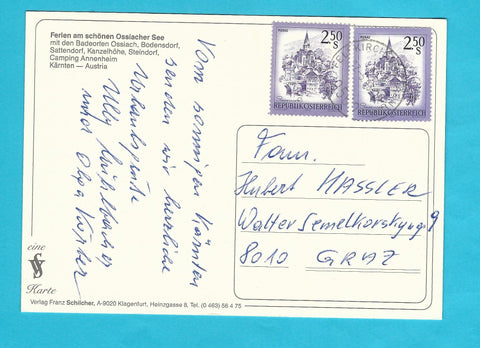 Ferien am schönen Ossiacher See
mit den Badeorten Ossiach, Bodensdorf,
Sattendorf, Kanzelhöhe, Steindorf,
Camping Annenheim
Kärnten — Austria
Vom sonnigen Kärnten
senden wir herzliche
Urlaubsgrüße
und Olga
MURAU
2.50
S
REPUBLIK ÖSTERREICH
2.50
S
REPUBLIK ÖSTERREICH
Fam.
Hubert HASSLER
8010 GRAZ
eine
Karte
Verlag Franz Schilcher, A-9020 Klagenfurt, Heinzgasse 8, Tel. (0 463) 56 4 75